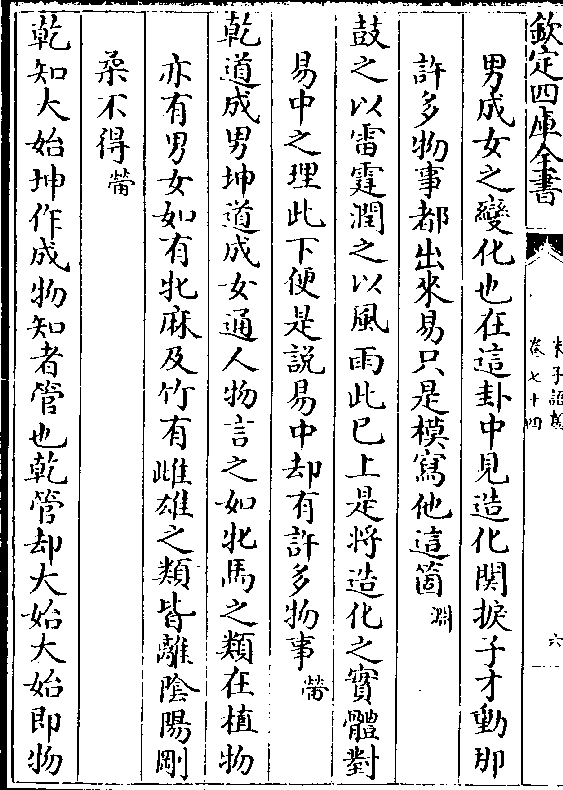 欽定四庫全書
朱子語類
卷七十四
六
男成女之變化也在這卦中見造化関捩子才動那
許多物事都出來易只是模寫他這箇 淵
鼓之以雷霆潤之以風雨此已上是將造化之實體對
易中之理此下便是説易中却有許多物事 㽦
乾道成男坤道成女通人物言之如牝馬之類在植物
亦有男女如有牝麻及竹有雌雄之類皆離陰陽剛
柔不得 㽦
乾知大始坤作成物知者管也乾管却大始大始即物